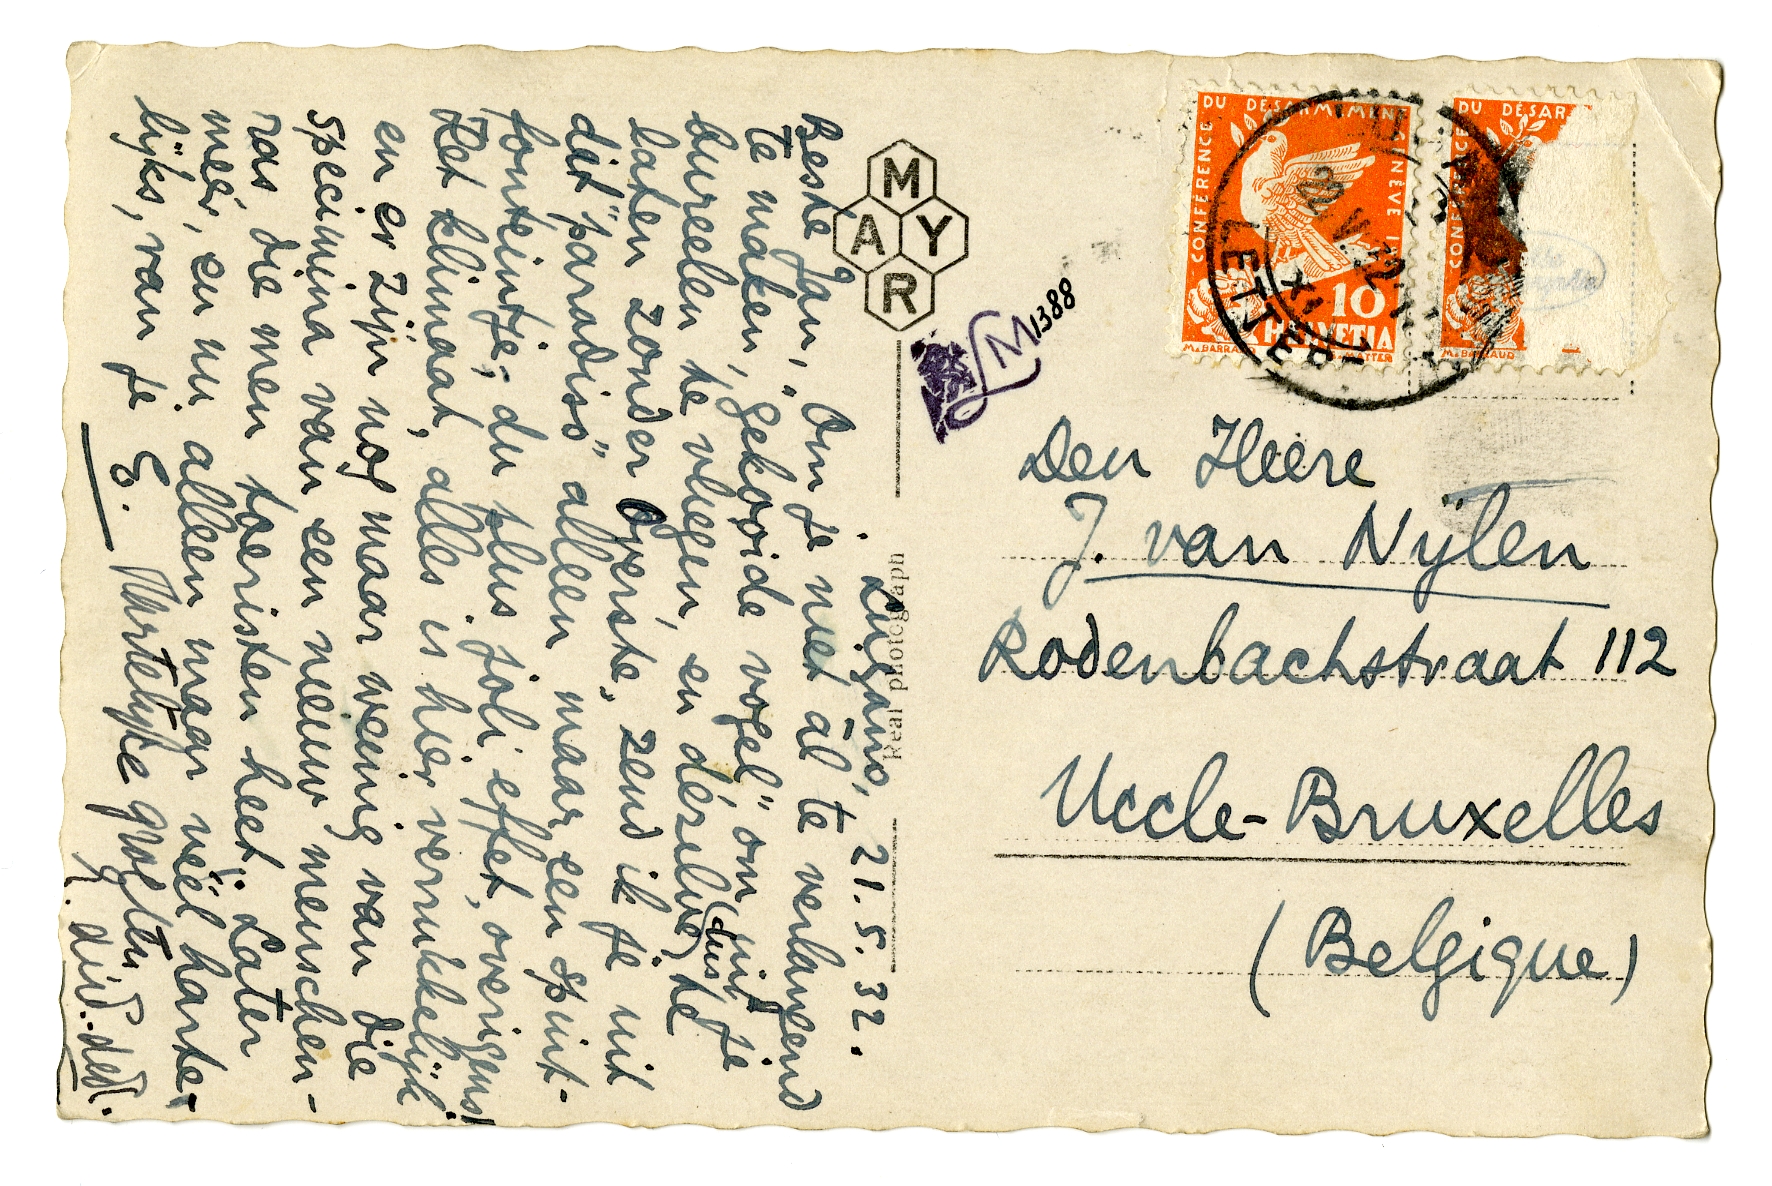 Lugano, 21.5.32.
Beste Jan, Om je niet ál te verlangend
te maken, "gekooide vogel" om uit je
bureelen te vliegen, en désertie (dus) te
laten zonder Overste, zend ik je uit
dit "paradiso" alleen maar een spuit-
fonteintje, du plus joli effet, overigens!
Het klimaat, alles is hier verrukkelijk
en er zijn nog maar weinig van die
specimina van een nieuw menschen-
ras die men toeristen heet. Later
meer, en nu alleen maar véél harte-
lijks, van je E.
Hartelijke groeten
MAYR
Real photograph
LM 1388
Den Heere
J. van Nijlen
Rodenbachstraat 112
Uccle-Bruxelles
(Belgique)
CONFERENCE DU DÉSARMEMENT GENÈVE
10
HELVETIA
CONFERENCE DU DÉSAR
M. BARRAUD
LETTER